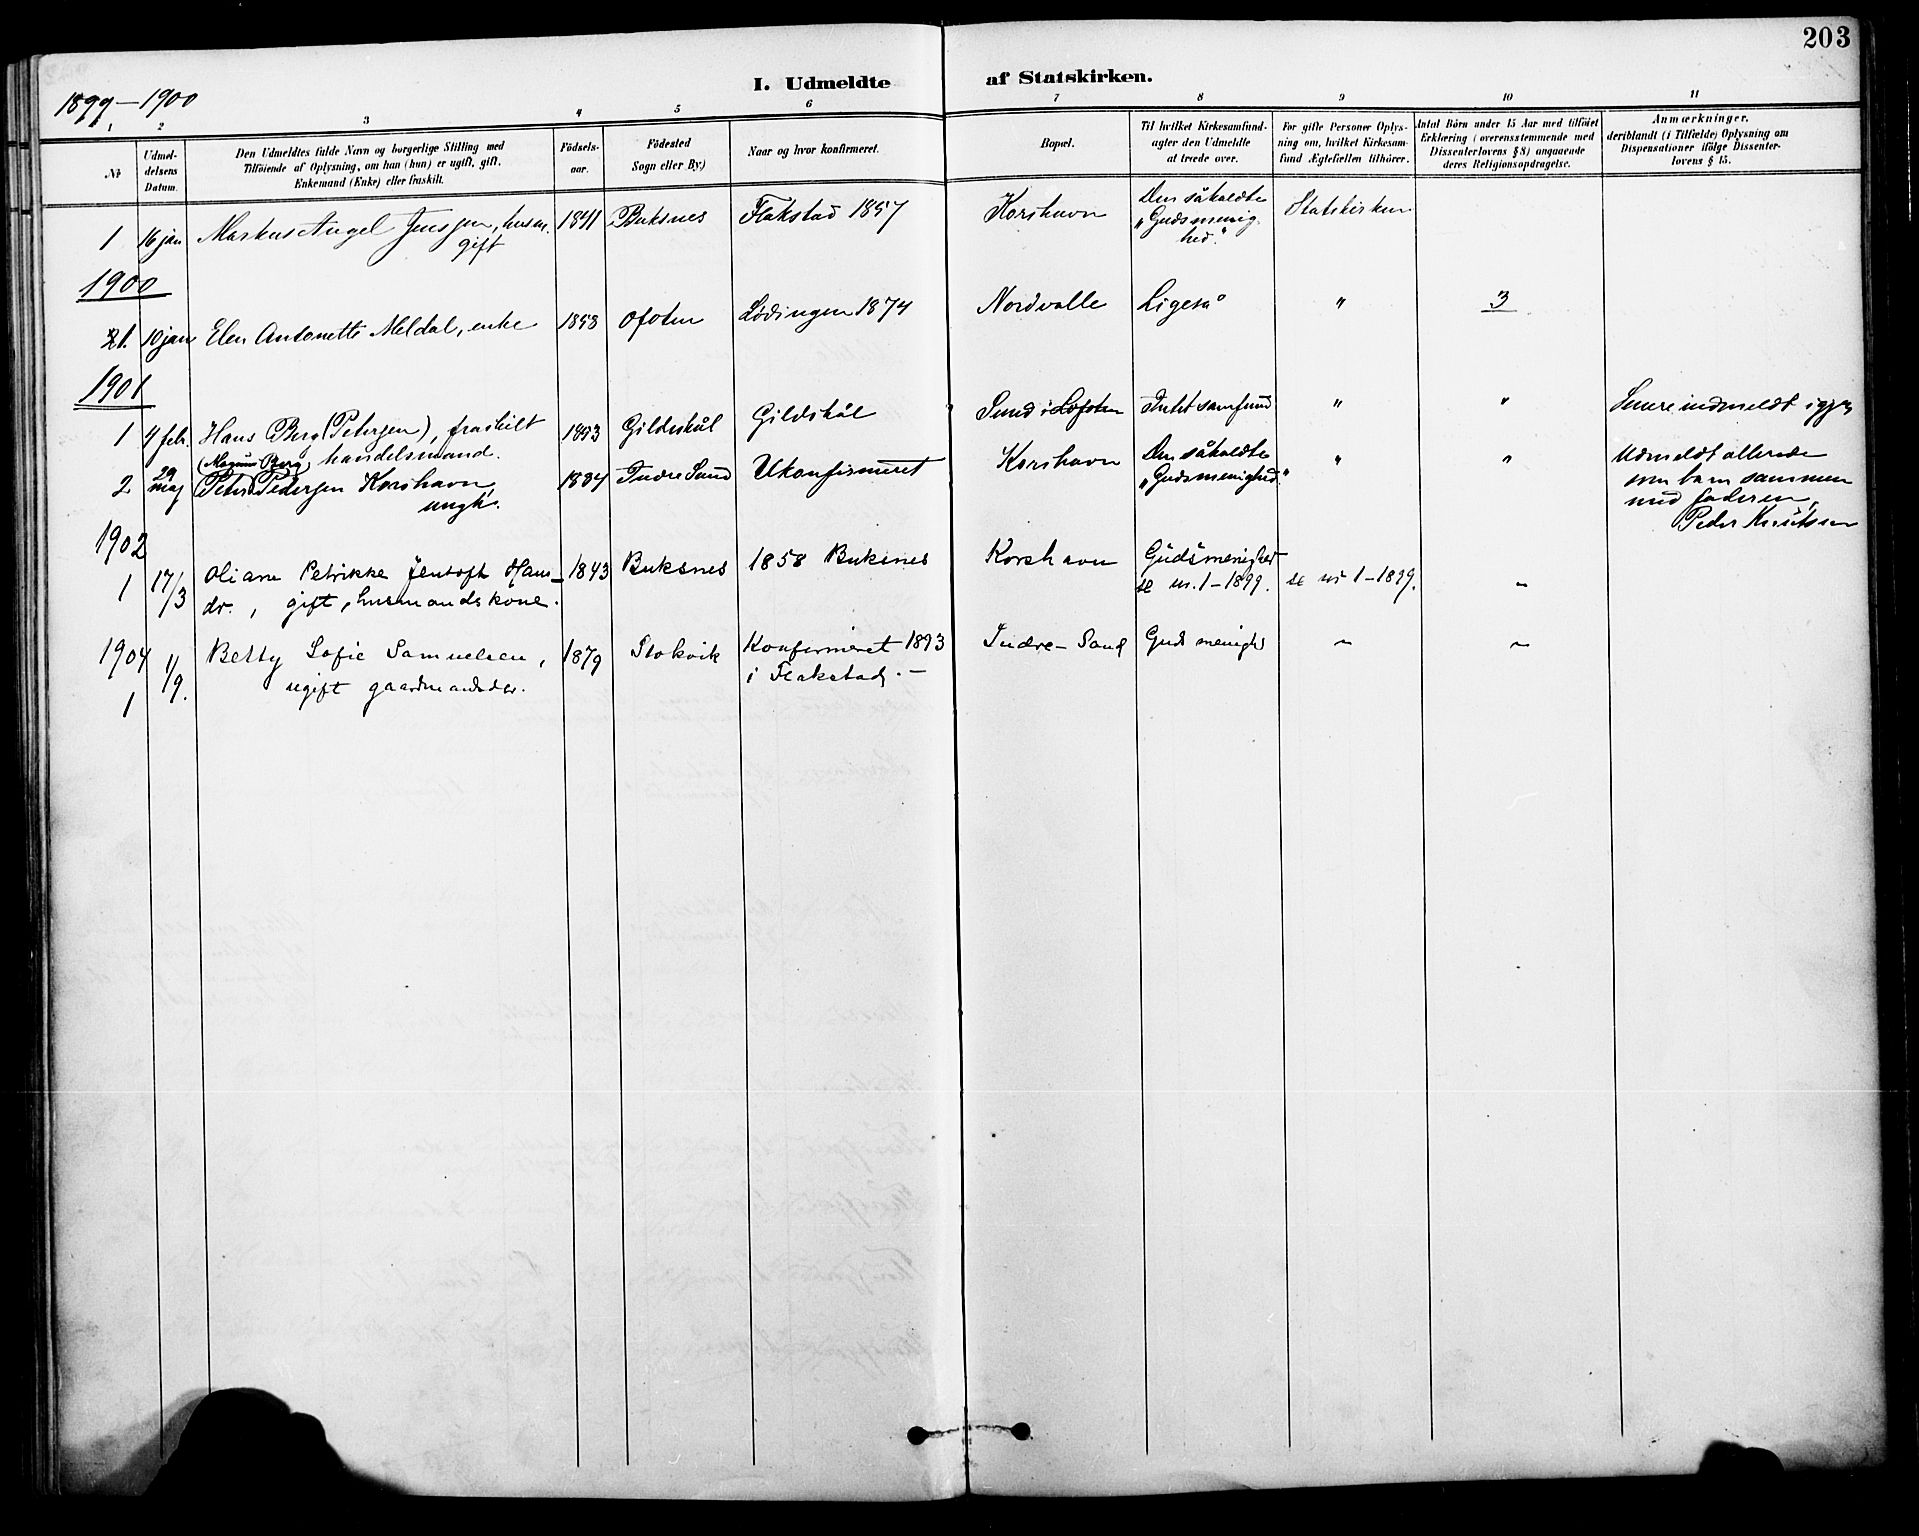 203
I. Udmeldte af Statskirken.
1899–1900
1 2 3 4 5 6 7 8 9 10 11
No
Udmel-
delsens
Datum.
Den Udmeldtes fulde Navn og borgerlige Stilling med
Tilföiende af Oplysning, om han (hun) er ugift, gift,
Enkemand (Enke) eller fraskilt.
Födsels-
aar.
Födested
Sogn eller By.)
Naar og hvor konfirmeret.
Bopæl.
Til hvilket Kirkesamfund-
agter den Udmeldte
at træde over.
For gifte Personer Oplys-
ning om, hvilket Kirkesam-
fund Ægtefællen tilhörer.
Antal Börn under 15 Aar med tilföiet
Erklæring (overensstemmende med
Dissenterlovens § 8) angaaende
deres Religionsopdragelse.
Anmærkninger,
deriblandt (i Tilfælde) Oplysning om
Dispensationer ifölge Dissenter-
lovens § 15.
1 16 jan Markus Angel Jensen, husm. 1841 Buksnes Flakstad 1857 Korshavn Den såkaldte Statskirken
gift "Guds menig-
hed."
1900
1. 10 jan Elen Antonette Meldal, enke 1858 Ofoten Lödingen 1874 Nordvalle Ligeså " 3
1901
1 9 feb. Hans Berg (Petersen), fraskilt 1853 Gildeskål Gildskål Sund i Lofoten Intet samfund " " Senere indmeldt igjen
handelsmand.
(Magnus Berg)
2 29 maj Peter Pedersen Korshavn, 1884 Indre Sund Ukonfirmeret Korshavn Den såkaldte " " Udmeldt allerede
ungk. "Gudsmenighed" som barn sammen
med faderen,
Peder Knutsen
1902
1 17/3 Oliane Petrikke Jentoft Hans- 1843 Buksnes 1858 Buksnes Korshavn Gudsmenighed
dr., gift, husmandskone. se nr. 1–1899. se nr 1–1899. "
1904 1/9. Betty Sofie Samuelsen, 1879 Stokvik Konfirmeret 1893 Indre-Sand Guds menighed " "
1 ugift gaardmandsdr. i Flakstad. –